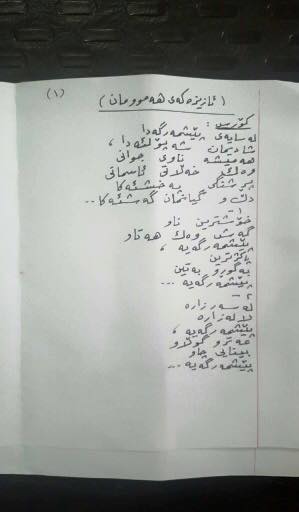 (١)
( ئازیزەکەی هەموومان )
کۆرس :
لەسایەی پێشمەرگەدا
شادیمان شەپۆلئەدا ،
هەمیشە ناوی جوانی
وەك خەڵاتی ئاسمانی
پرشنگی بەخشئەکا
دڵ و گیانمان گەشئەکا ..
١ -
خۆشترین ناو
گەش وەك هەتاو
پێشمەرگەیە ،
پاکترین
بەگوڕو بەتین
پێشمەرگەیە ...
٢ -
لە سەر زارە
لالەزارە
پێشمەرگەیە ،
عەترو گوڵاو
بینایی چاو
پێشمەرگەیە ..